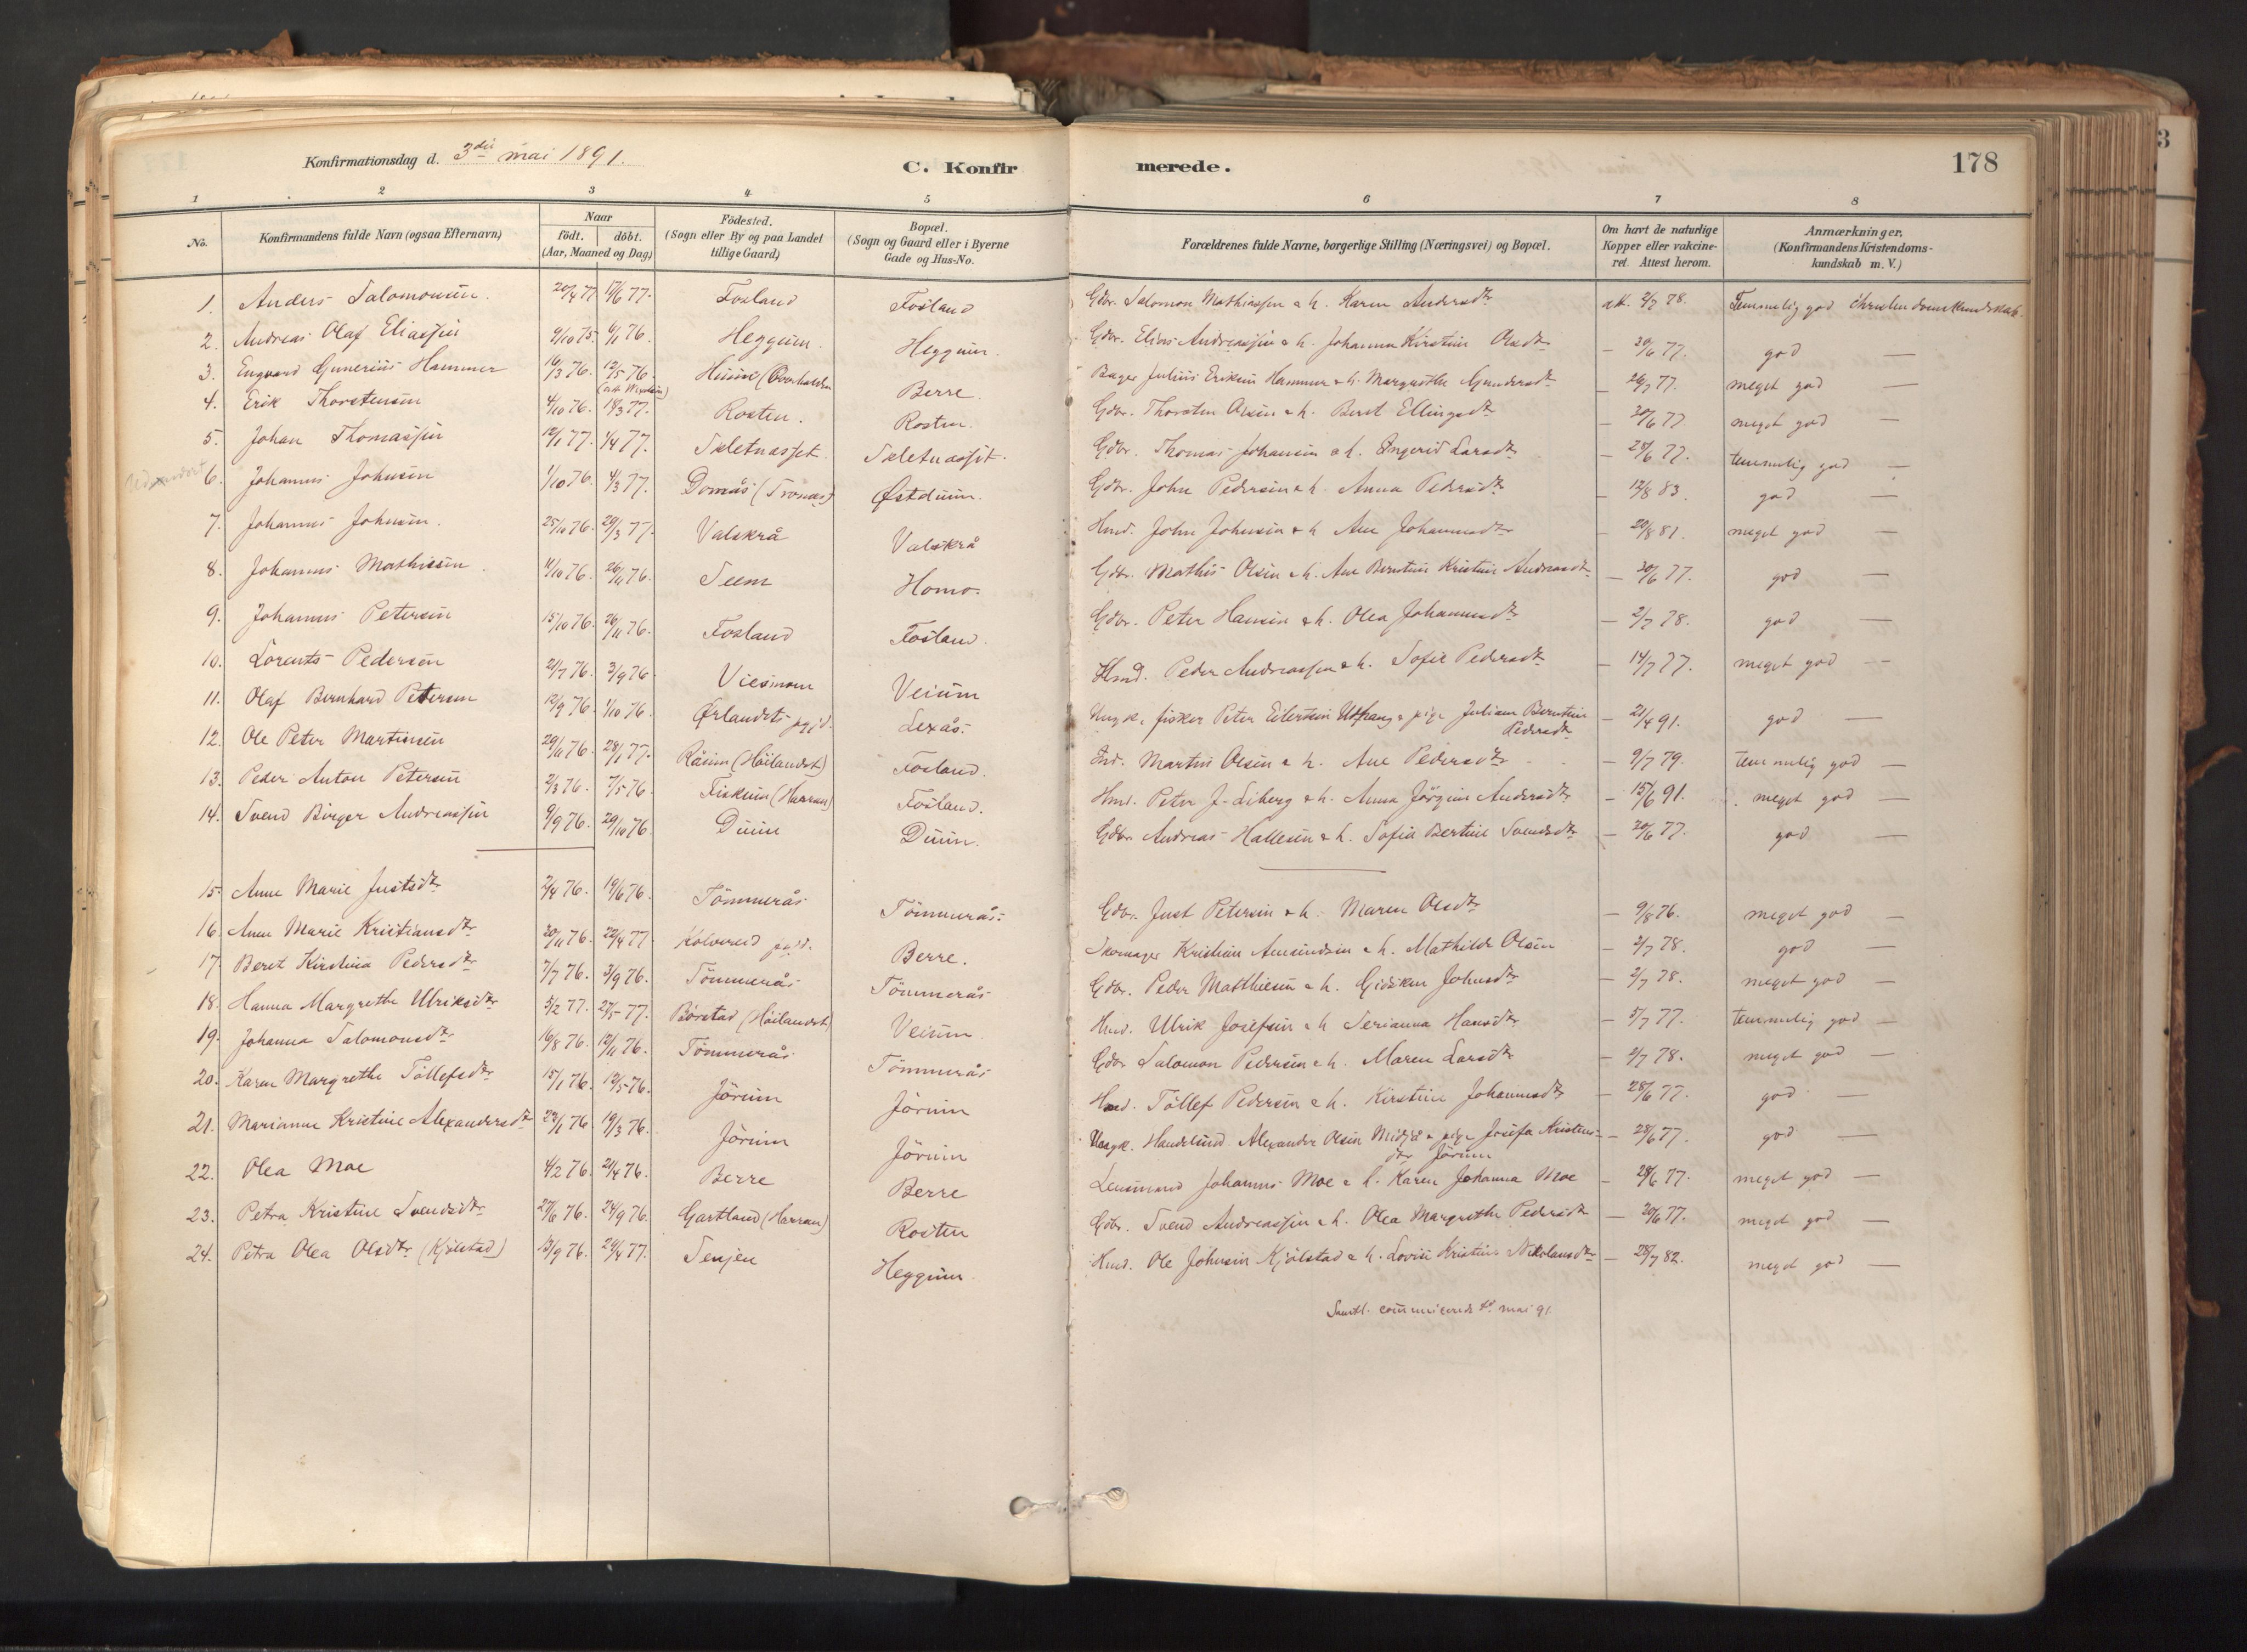 Konfirmationsdag d. 3die mai 1891.
C. Konfirmerede.
178
1 2 3 4 5 6 7 8
No.
Konfirmandens fulde Navn (ogsaa Efternavn)
Naar
födt. döbt.
(Aar, Maaned og Dag)
Födested.
(Sogn eller By og paa Landet
tillige Gaard)
Bopæl.
(Sogn og Gaard eller i Byerne
Gade og Hus-No.
Forældrenes fulde Navne, borgerlige Stilling (Næringsvei) og Bopæl.
Om havt de naturlige
Kopper eller vakcine-
ret. Attest herom.
Anmærkninger.
(Konfirmandens Kristendoms-
kundskab m. V.)
1. Anders Salomonsen. 20/4 77 17/6 77. Fosland Fosland Gdbr. Salomon Mathiassen & h. Karen Andersdtr att. 2/7 78. Temmelig god Christendomskundskab.
2. Andreas Olaf Eliassen 9/10 75. 6/1 76. Heggum. Heggum. Gdbr. Elias Andreassen & h. Johanna Kirstine Olsdtr — 20/6 77. god —
3. Engvard Gunerius Hammer 16/3 76. 12/5 76. Berre. Bager Julius Eriksen Hammer & h. Margrethe Gundersdtr — 26/7 77. meget god —
4. Erik Thorstensen 4/10 76. 18/3 77. Rosten. Rosten. Gdbr. Thorsten Olsen & h. Beret Ellingsdtr — 20/6 77 meget god —
5. Johan Thomassen 12/1 77. 4/4 77. Skletnasset Skletnasset. Gdbr. Thomas Johansen & h. Ingerid Larsdtr — 25/6 77. temmelig god —
6. Johannes Johnsen 1/10 76. 4/3 77. Domås (Tronæs) Østduun. Gdbr. John Pedersen & h. Anna Pedersdtr — 12/8 83. god —
7. Johannes Johnsen. 25/10 76. 29/3 77. Valskrå Valskrå Hmd. John Johnsen & h Ane Johannesdtr — 20/8 81. meget god —
8. Johannes Mathisen. 11/10 76. 26/11 76. Seem Homo. Gdbr. Mathis Olsen & h. Ane Berntine Kristine Andreasdtr — 20/6 77. god —
9. Johannes Petersen 15/10 76. 26/11 76. Fosland Fosland. Gdbr. Peter Hansen & h. Olea Johannesdtr — 2/7 78. god —
10. Lorents Pedersen 21/7 76. 3/9 76. Viesmoen Veium Hmd. Peder Andreassen & h. Sofie Pedersdtr — 14/7 77. meget god —
11. Olaf Bernhard Petersen 12/9 76. 1/10 76. Ørlandets pgjd. Lexås. Ungk. fisker Peter Eilertsen Utfrang & pige Juliane Berntine Pedersdtr — 21/4 91. god —
12. Ole Peter Martinsen 29/11 76. 28/1 77. Råum (Höilandet) Fosland. Ind. Martin Olsen & h. Ane Pedersdtr — 9/7 79. temmelig god —
13. Peder Anton Petersen 2/3 76. 7/5 76. Fiskum (Harran) Fosland. Hmd. Peter J. Liberg & h. Anna Jörgine Andersdtr — 15/6 91. meget god —
14. Svend Birger Andreassen 9/9 76. 29/10 76. Duun Duun. Gdbr. Andreas Hallesen & h. Sofie Bertine Svendsdtr — 20/6 77. god —
15. Anne Marie Justsdtr 2/4 76. 19/6 76. Tömmerås Tömmerås. Gdbr. Just Petersen & h. Maren Olsdtr — 9/8 76. meget god —
16. Anne Marie Kristiansdtr 20/11 76. 22/4 77. Kolvereid pgjd. Berre. Skomager Kristian Amundsen & h. Mathilde Olsen — 2/7 78. god —
17. Beret Kirstina Pedersdtr 7/7 76. 3/9 76. Tömmerås Tömmerås Gdbr. Peder Matthiesen & h. Gidsken Johnsdtr — 2/7 78. meget god —
18. Hanna Margrethe Ulriksdtr 3/2 77. 27/5 77. Börstad (Höilandet) Veium Hmd. Ulrik Josefsen & h Serianna Hansdtr — 5/7 77. temmelig god —
19. Johanna Salomonsdtr 16/8 76. 12/11 76. Tömmerås Tömmerås Gdbr Salomon Pedersen & h. Maren Larsdtr — 2/7 78. meget god —
20. Karen Margrethe Töllefsdtr 15/1 76. 12/5 76. Jörum Jörum Hmd. Töllef Pedersen & h. Kirstine Johannesdtr — 28/6 77. god —
21. Marianne Kristine Alexandersdtr 23/1 76 19/3 76. Jörum Jörum Ungk. Handelsmd. Alexander Olsen Midjå & pige Josefa Kristensdtr Jörum — 28/6 77. god —
22. Olea Moe 4/2 76. 21/4 76. Berre Berre Lensmand Johannes Moe & h. Karen Johanna Moe — 28/6 77. meget god —
23. Petra Kristine Svendsdtr 27/6 76. 24/9 76. Gartland (Harran) Rosten Gdbr. Svend Andreassen & h. Olea Margrethe Pedersdtr — 20/6 77. meget god —
24. Petra Olea Olsdtr (Kjölstad) 13/9 76. 29/4 77. Senjen Heggum Hmd. Ole Johnsen Kjölstad & h. Lovise Kristine Nikolausdtr — 28/7 82. meget god —
Samtl. communicerede mai 91.